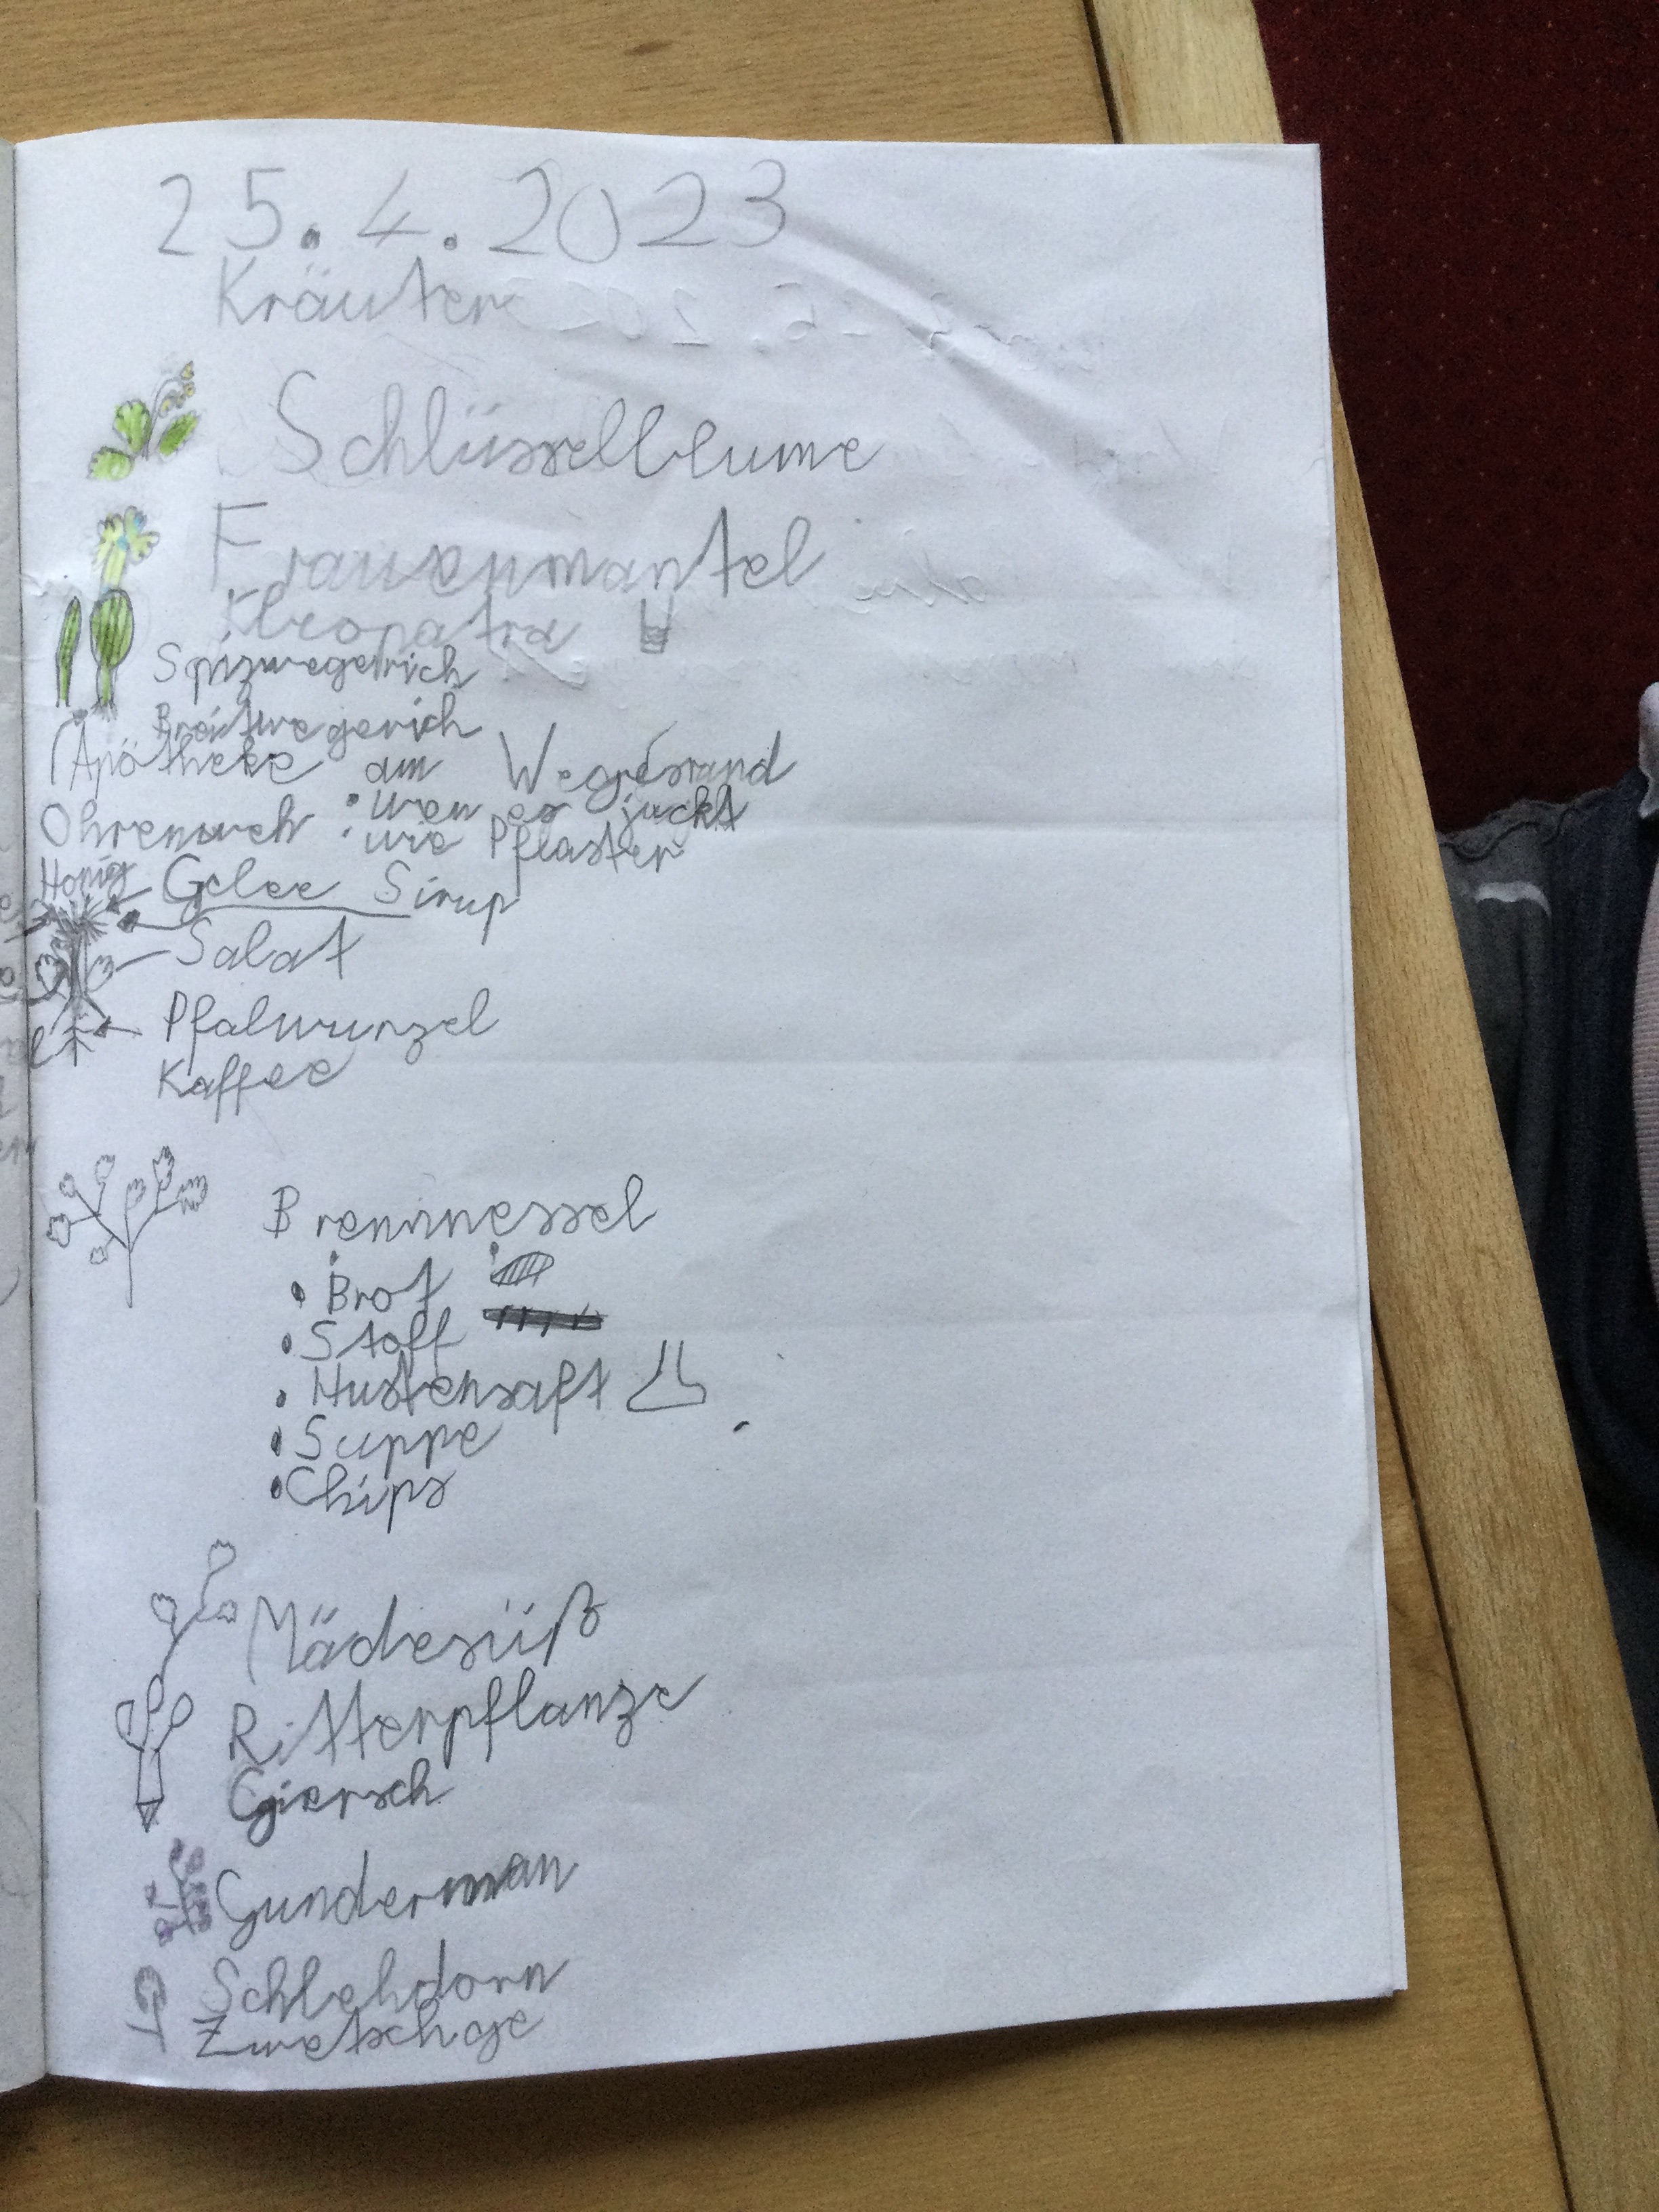 25.4.2023
Kräuter
Schlüsselblume
Frauenmantel
Kleopatra
Spizwegerich
Breitwegerich
(Apotheke am Wegesrand
Ohrenweh • wen es juckt
• wie Pflaster
Honig Gelee Sirup
Salat
Pfalwurzel
Kaffee
Brennnessel
• Brot
• Stoff
• Hustensaft
• Suppe
• Chips
Mädesüß
Ritterpflanze
Giersch
Gunderman
Schlehdorn
Zwetschge